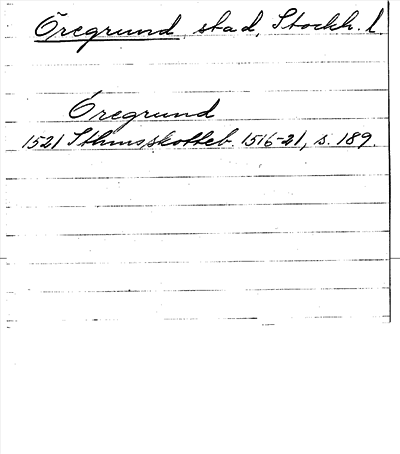 Öregrund, stad, Stockh. l.
Öregrund
1521 Sthmsskotteb. 1516-21, s. 189.